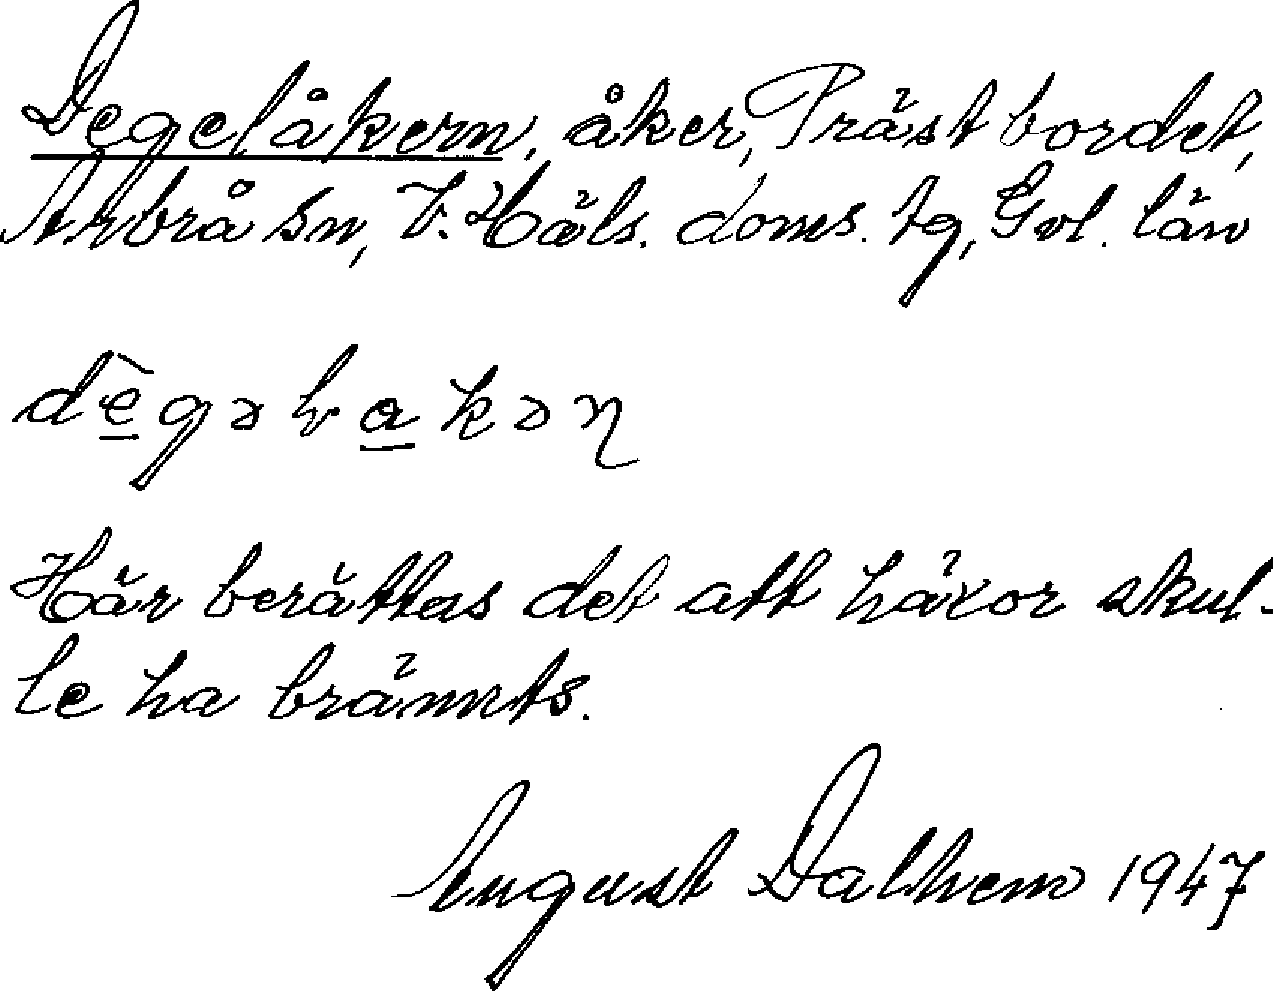 Degelåkern, åker, Prästbordet,
Arbrå sn, V. Häls. doms. tg, Gvl. län
dè̱gəlra̱kəɳ
Här berättas det att häxor skul-
le ha brännts.
August Dalhem 1947